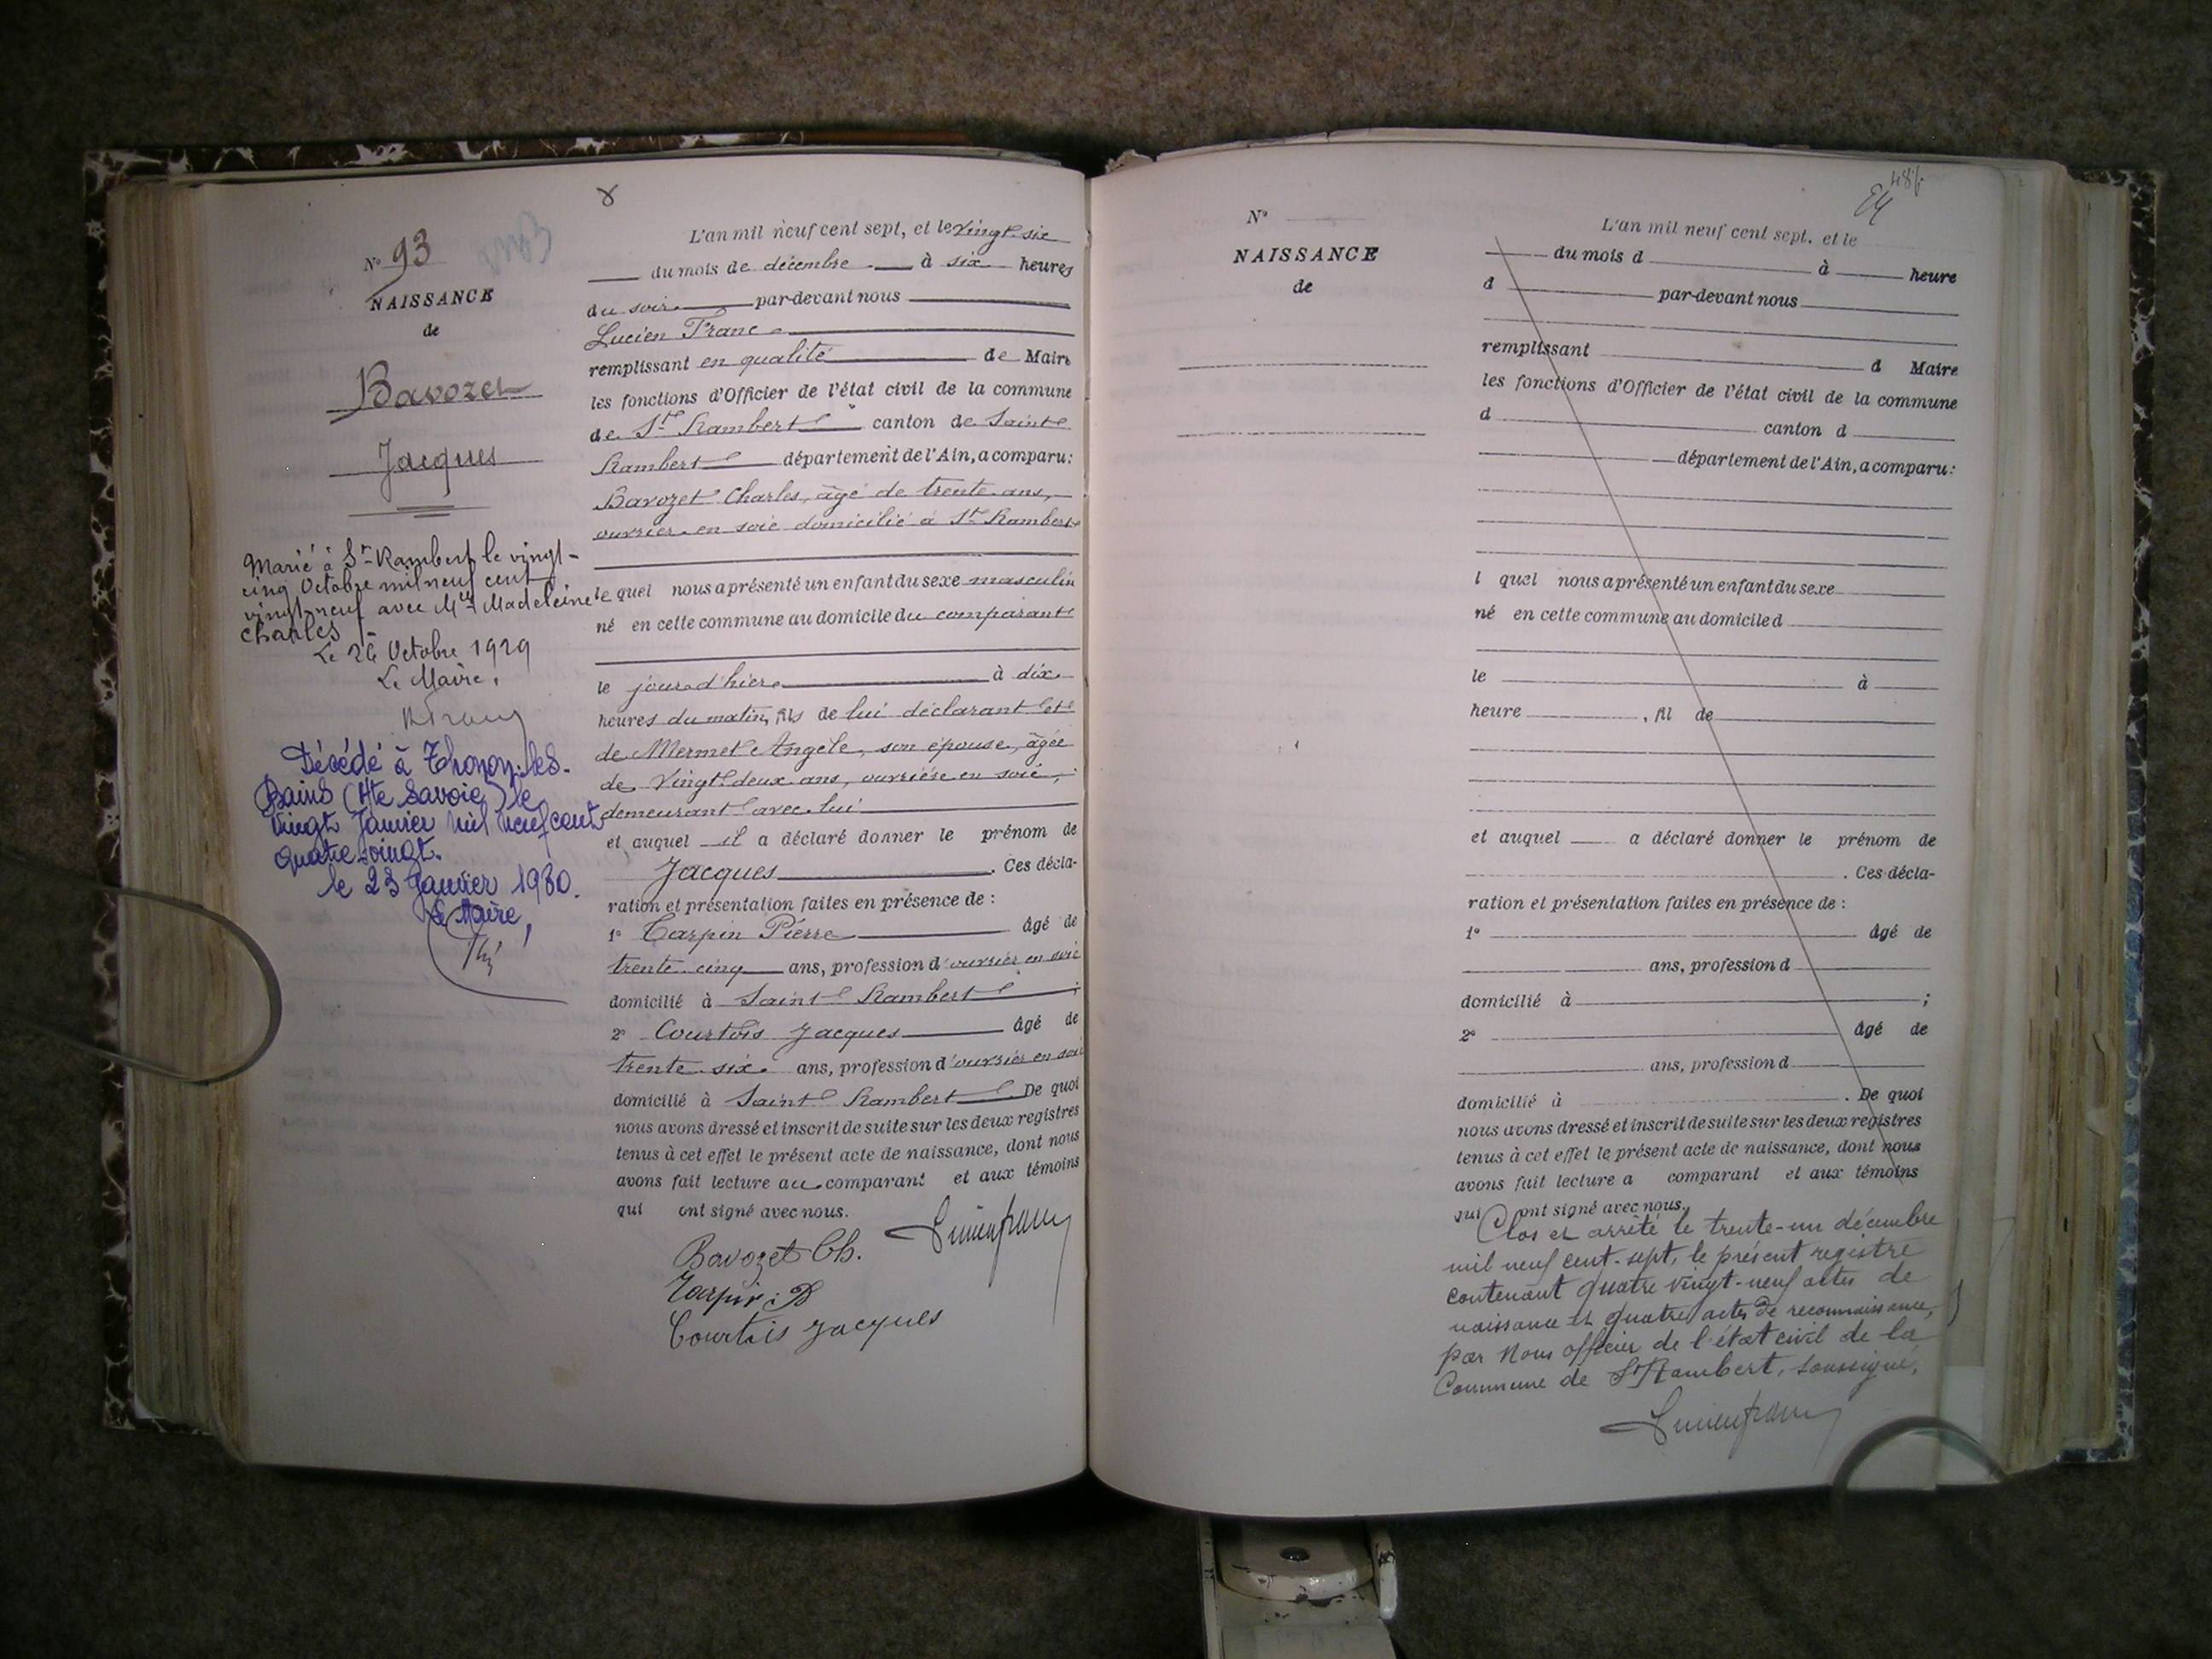 8
N° 93
NAISSANCE
de
Bavozet
Jacques
Marié à St-Rambert le vingt-
cinq Octobre mil neuf cent
vingt-neuf avec Mlle Madeleine
Charles
Le 26 Octobre 1929
Le Maire,
Décédé à Thonon-les-
Bains (Hte Savoie) le
vingt Janvier mil neuf cent
quatre vingt.
le 23 Janvier 1980.
Le Maire,
L'an mil neuf cent sept, et le vingt-six
du mois de décembre à six heures
du soir par-devant nous
Lucien Franc
remplissant en qualité de Maire
les fonctions d'Officier de l'état civil de la commune
de St Rambert canton de Saint
Rambert département de l'Ain, a comparu:
Bavozet Charles, âgé de trente ans,
ouvrier en soie domicilié à St Rambert
le quel nous a présenté un enfant du sexe masculin
né en cette commune au domicile du comparant
le jour d'hier à dix
heures du matin, fils de lui déclarant et
de Mermet Angèle, son épouse, âgée
de vingt-deux ans, ouvrière en soie,
demeurant avec lui
et auquel il a déclaré donner le prénom de
Jacques . Ces décla-
ration et présentation faites en présence de :
1° Tarpin Pierre âgé de
trente-cinq ans, profession d'ouvrier en soie
domicilié à Saint Rambert ;
2° Courtois Jacques âgé de
trente-six ans, profession d'ouvrier en soie
domicilié à Saint Rambert . De quoi
nous avons dressé et inscrit de suite sur les deux registres
tenus à cet effet le présent acte de naissance, dont nous
avons fait lecture au comparant et aux témoins
qui ont signé avec nous.
Lucien franc
Bavozet Ch.
Tarpin P
Courtois Jacques
N°
NAISSANCE
de
L'an mil neuf cent sept, et le
du mois d à heure
d par-devant nous
remplissant d Maire
les fonctions d'Officier de l'état civil de la commune
d canton d
département de l'Ain, a comparu:
l quel nous a présenté un enfant du sexe
né en cette commune au domicile d
le à
heure , fil de
et auquel a déclaré donner le prénom de
. Ces décla-
ration et présentation faites en présence de :
1° âgé de
ans, profession d
domicilié à ;
2° âgé de
ans, profession d
domicilié à . De quoi
nous avons dressé et inscrit de suite sur les deux registres
tenus à cet effet le présent acte de naissance, dont nous
avons fait lecture a comparant et aux témoins
qui ont signé avec nous.
Clos et arrêté le trente-un décembre
mil neuf cent-sept, le présent registre
contenant quatre vingt-neuf actes de
naissance et quatre actes de reconnaissance,
par Nous officier de l'état civil de la
Commune de St Rambert, soussigné,
Lucien franc